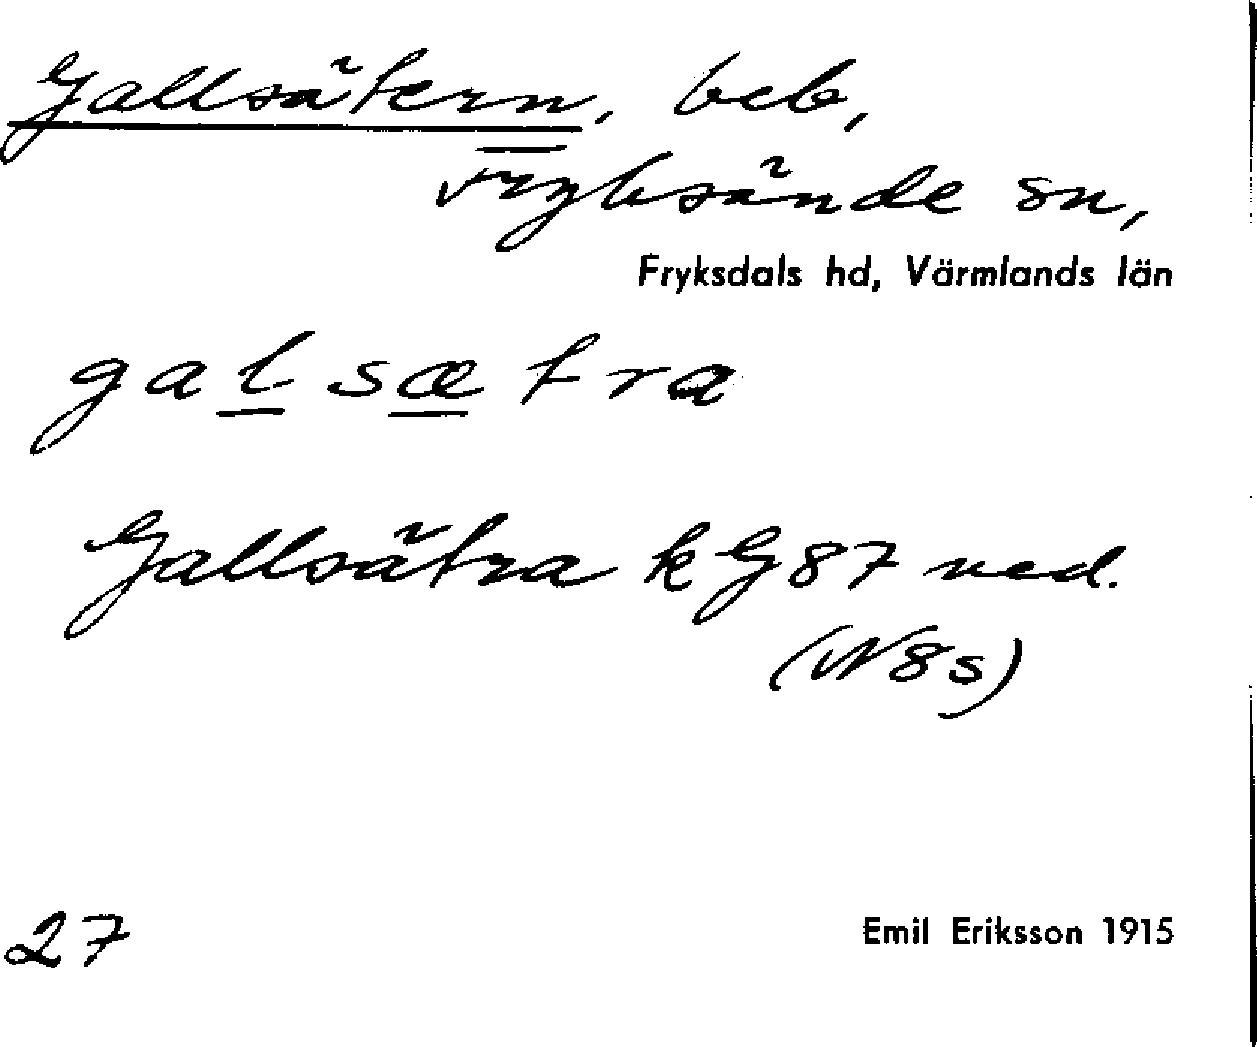 Gallsätern, beb,
Fryksände sn,
Fryksdals hd, Värmlands län
galsætra
Gallsätra k G87 ned.
(N8s)
27
Emil Eriksson 1915